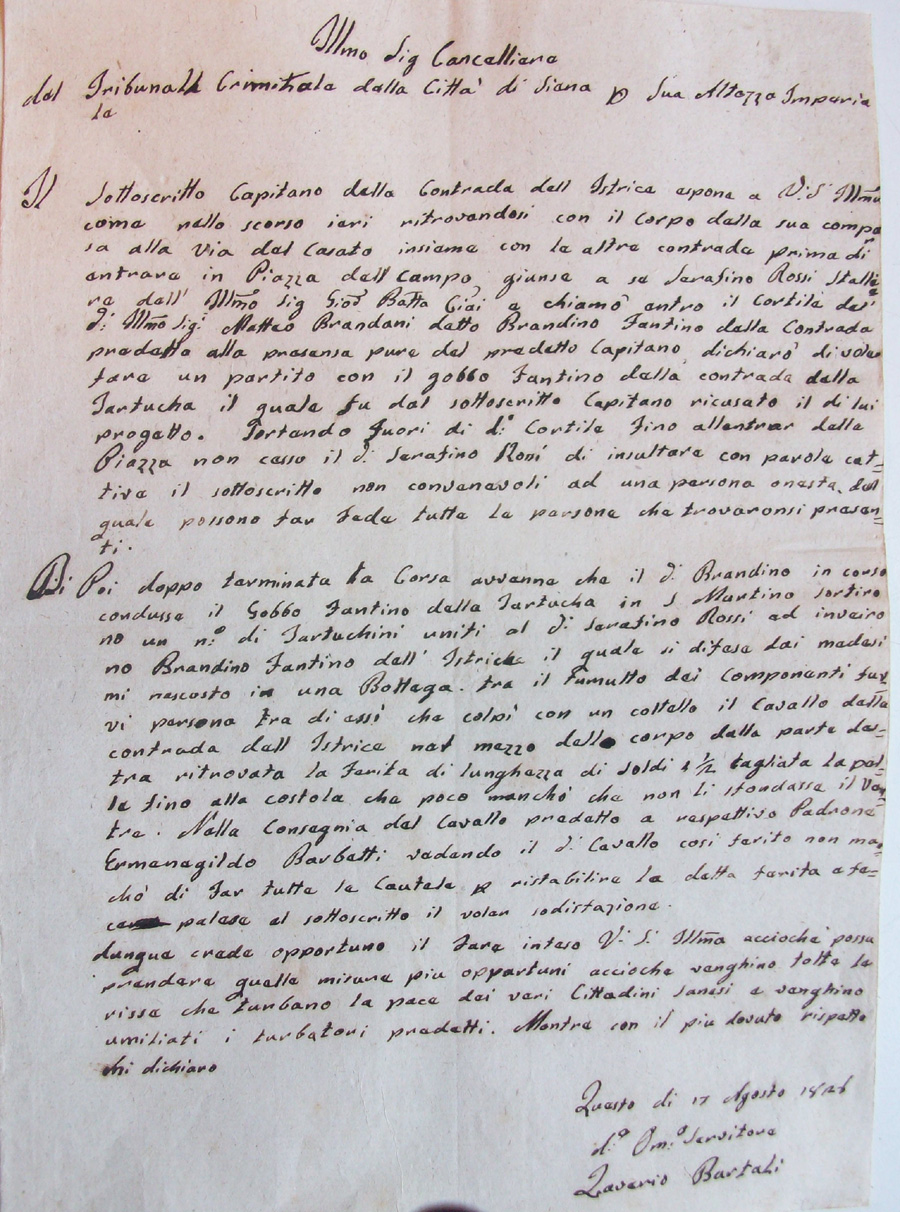 Illmo Sig Cancelliere
del Tribunale Criminale della Città di Siena p Sua Altezza Imperia
le
Il Sottoscritto Capitano della Contrada dell Istrice espone a V: S: Illma
come nello scorso ieri ritrovandosi con il Corpo della sua compa
sa alla Via del Casato insieme con le altre contrade prima di
entrare in Piazza dell Campo, giunse a se Serafino Rossi Stallie
re dell' Illmo Sig Gioo Batta Ciai e chiamò entro il Cortile del
d: Illmo Sig: Matteo Brandani detto Brandino Fantino della Contrada
predetta alla presensa pure del predetto Capitano, dichiarò di vole
fare un partito con il gobbo Fantino della contrada della
Tartucha il quale fu dal sottoscritto Capitano ricusato il di lui
progetto. Sortendo fuori di d: Cortile fino allentrar delle
Piazza non cesso il d: Serafino Rossi di insultare con parole cat=
tive il sottoscritto non convenevoli ad una persona onesta, del
quale possono far Fede tutte le persone che trovaronsi presen=
ti.
Di Poi doppo terminata la Corsa avvenne che il d: Brandino in corso
condusse il Gobbo Fantino della Tartucha in S Martino sortiro
no un n.o di Tartuchini uniti al d: Serafino Rossi ad inveiro
no Brandino Fantino dell' Istriche il quale si difese dai medesi
mi nescosto in una Bottega. tra il Tumutto dei Componenti fuv
vi persona tra di essi che colpì con un coltello il Cavallo della
contrada dell Istrice nel mezzo dello corpo dalla parte des=
tra ritrovata la Ferita di lunghezza di Soldi 1 1/2 tagliata la pel=
le fino alla costola che poco manchò che non li sfondasse il Ven
tre. Nella Consegnia del Cavallo predetto a respettivo Padrone
Ermenegildo Barbetti vedendo il d: Cavallo così ferito non man
chò di Far tutte le Cautele p ristabilire la detta ferita e fe=
ce palese al sottoscritto il voler sodisfazione.
dunque crede opportuno il Fare inteso V: S: Illma acciochè possa
prendere quelle misure piu opportuni accioche venghino tolte le
risse che turbano la pace dei veri Cittadini Sanesi e venghino
umiliati i turbatori predetti. Mentre con il piu dovuto rispetto
mi dichiaro
Questo di 17 Agosto 1826
d:o Om:o Servitore
Zaverio Bartali